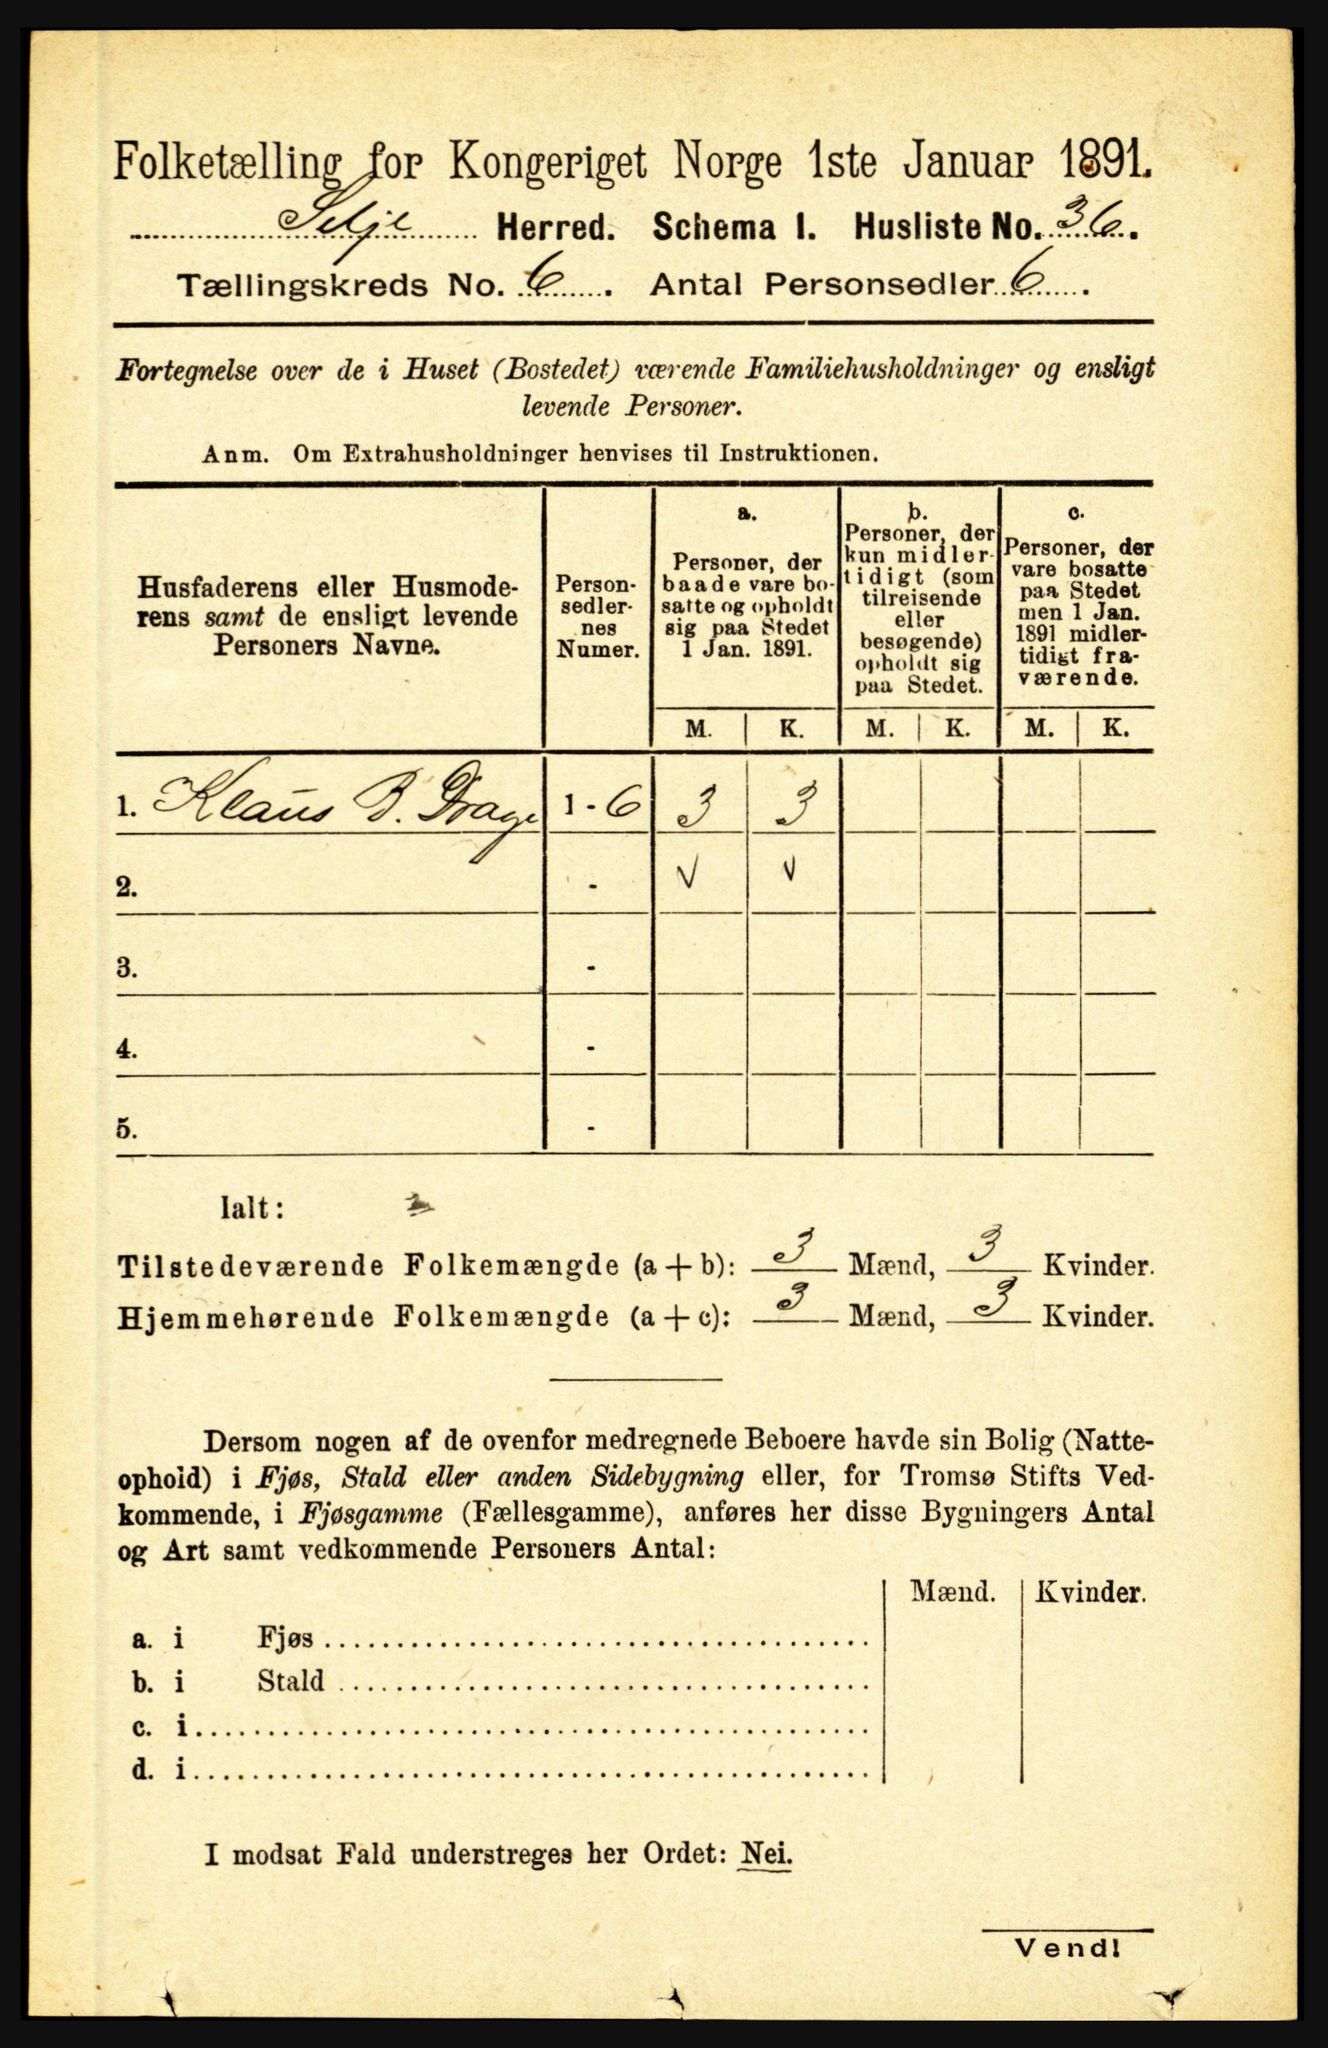 Folketælling for Kongeriget Norge 1ste Januar 1891.
Selje Herred. Schema I. Husliste No. 36.
Tællingskreds No. 6. Antal Personsedler 6.
Fortegnelse over de i Huset (Bostedet) værende Familiehusholdninger og ensligt
levende Personer.
Anm. Om Extrahusholdninger henvises til Instruktionen.
Husfaderens eller Husmode-
rens samt de ensligt levende
Personers Navne.
Person-
sedler-
nes
Numer.
a.
Personer, der
baade vare bo-
satte og opholdt
sig paa Stedet
1 Jan. 1891.
b.
Personer, der
kun midler-
tidigt (som
tilreisende
eller
besøgende)
opholdt sig
paa Stedet.
c.
Personer, der
vare bosatte
paa Stedet
men 1 Jan.
1891 midler-
tidigt fra-
værende.
M. K. M. K. M. K.
1. Klaus B. Drage 1 - 6 3 3
2. - √ √
3. -
4. -
5. -
Ialt:
Tilstedeværende Folkemængde (a + b): 3 Mænd, 3 Kvinder.
Hjemmehørende Folkemængde (a + c): 3 Mænd, 3 Kvinder.
Dersom nogen af de ovenfor medregnede Beboere havde sin Bolig (Natte-
ophold) i Fjøs, Stald eller anden Sidebygning eller, for Tromsø Stifts Ved-
kommende, i Fjøsgamme (Fællesgamme), anføres her disse Bygningers Antal
og Art samt vedkommende Personers Antal:
Mænd. Kvinder.
a. i Fjøs
b. i Stald
c. i
d. i
I modsat Fald understreges her Ordet: Nei.
Vend!